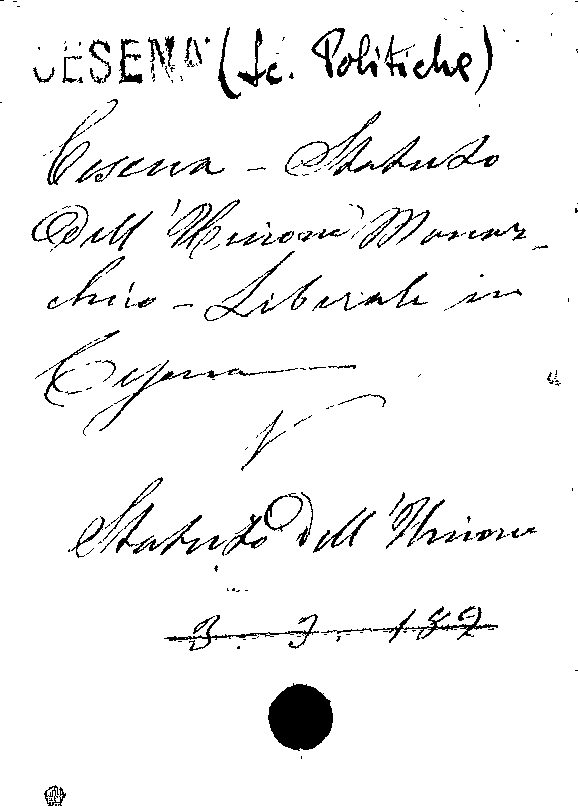 CESENA (Sc. Politiche)
Cesena - Statuto
dell'Unione Monar-
chico - Liberale in
Cesena
V
Statuto dell'Unione
3. 3. 187